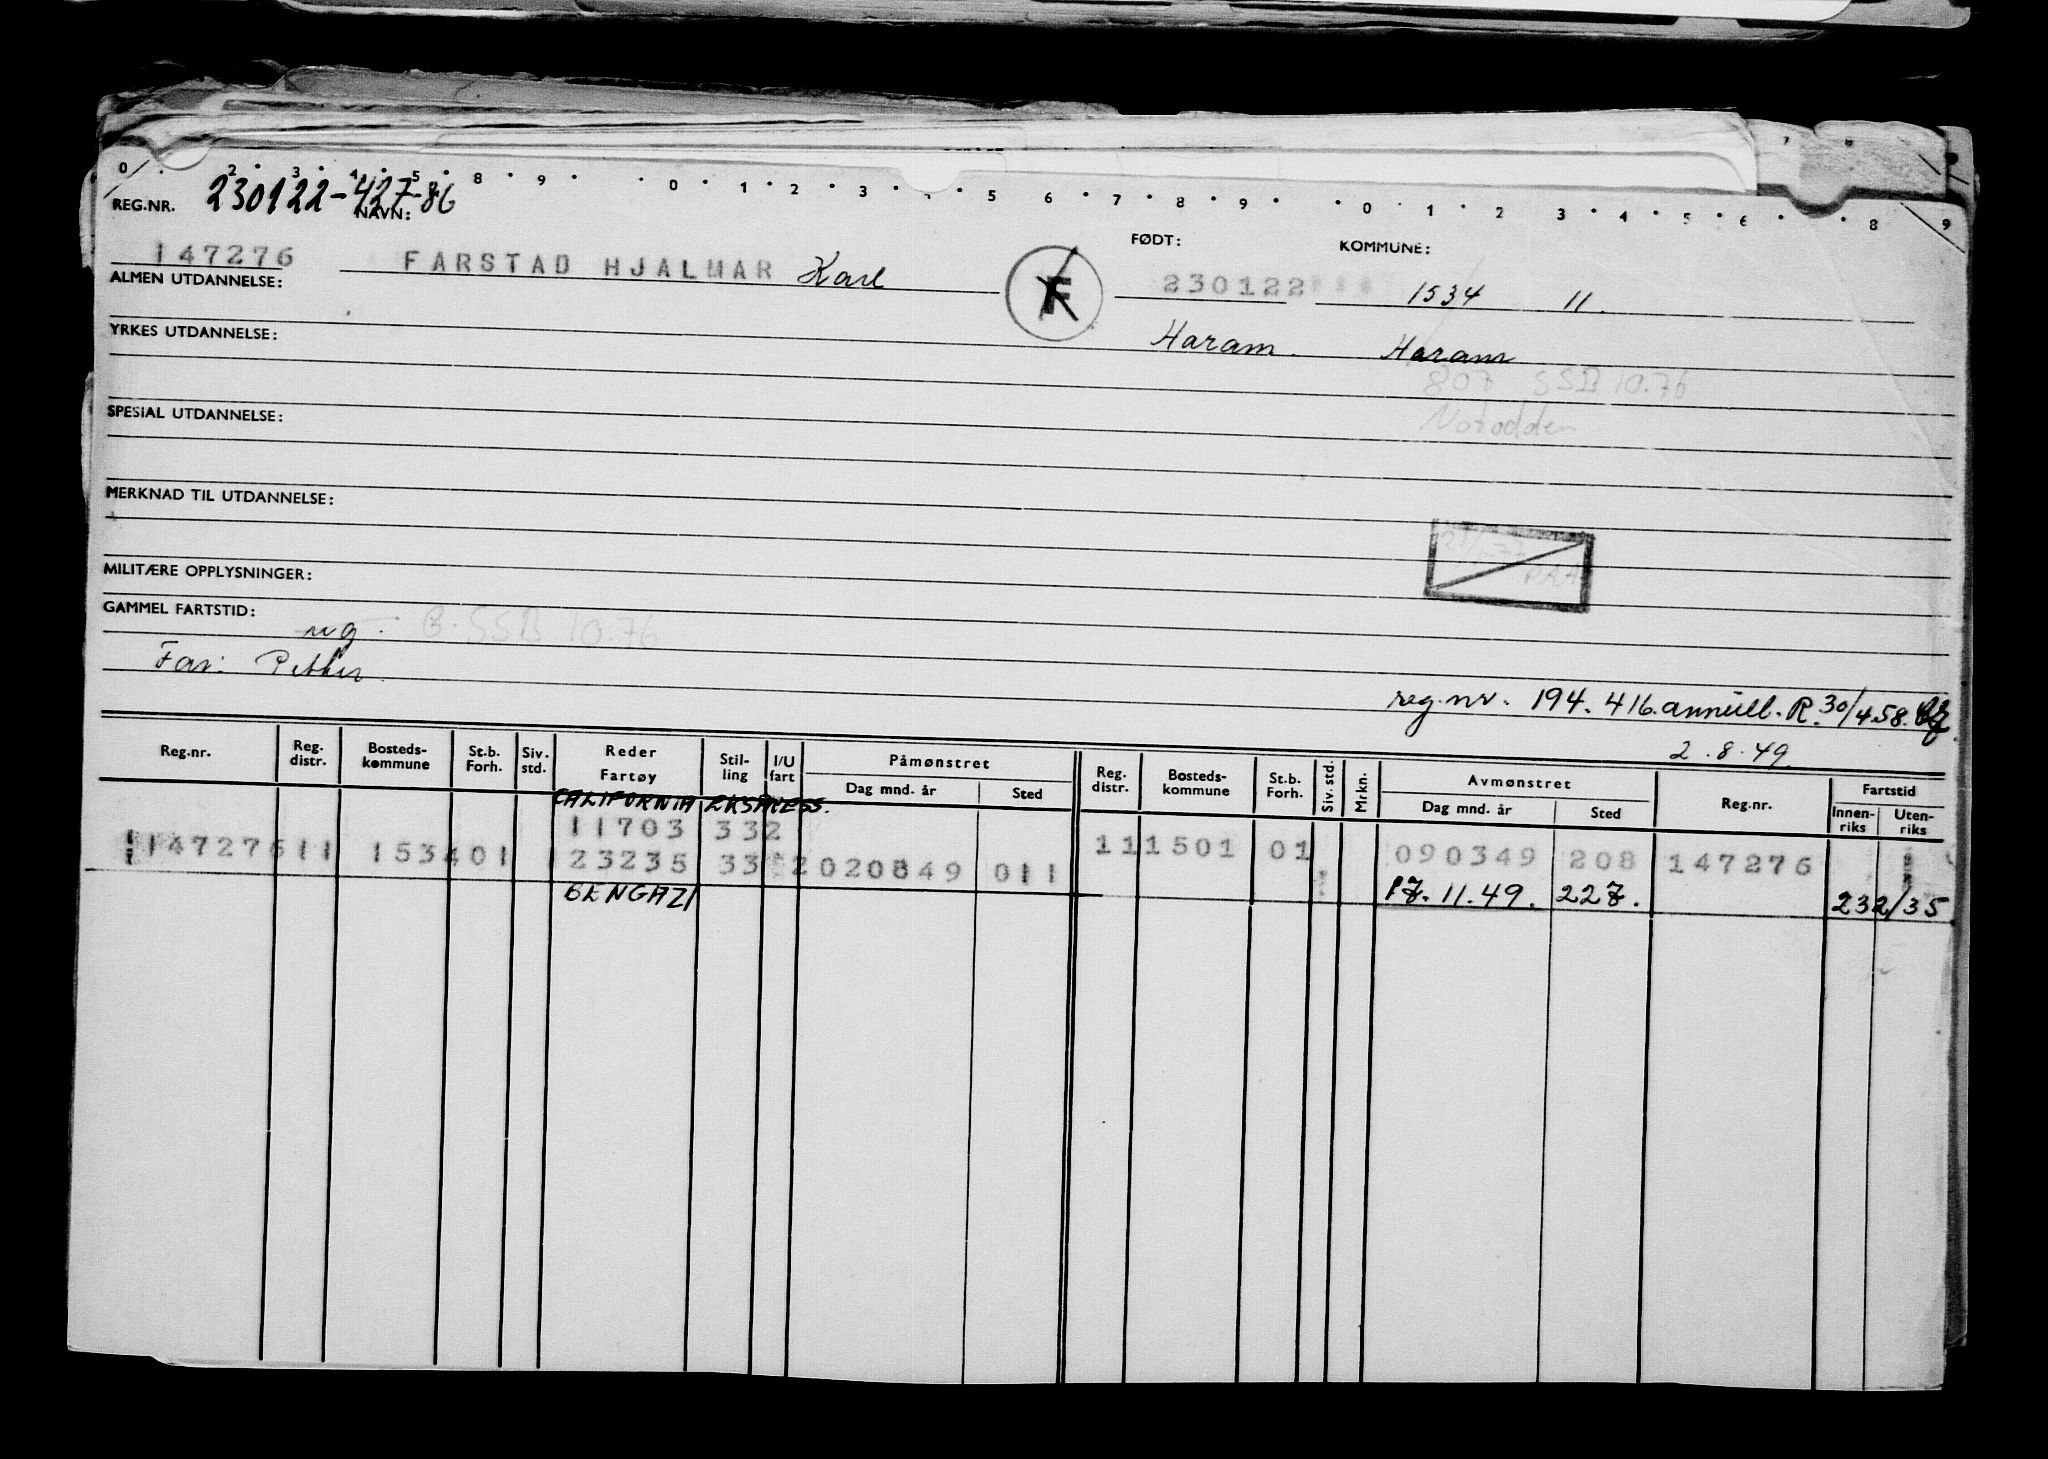 0 2 3 4 5 8 9 0 1 2 3 5 6 7 8 9 0 1 2 3 4 5 6 8 9
REG.NR. 230122-427-86
NAVN:
FØDT:
KOMMUNE:
147276 FARSTAD HJALMAR Karl F 230122 1534 11.
ALMEN UTDANNELSE:
Haram. Haram
YRKES UTDANNELSE:
807 SSB 10.76
Notodden
SPESIAL UTDANNELSE:
MERKNAD TIL UTDANNELSE:
MILITÆRE OPPLYSNINGER:
GAMMEL FARTSTID:
ug. B. SSB 10.76
Far: Petter.
reg.nr. 194.416. annull. R. 30/4.58.
2.8.49.
Reg.nr. Reg. distr. Bosteds-kommune St.b. Forh. Siv. std. Reder Fartøy Stil-ling I/U fart Påmønstret Dag mnd. år Sted Reg. distr. Bosteds-kommune St.b. Forh. Siv. std. Mrkn. Avmønstret Dag mnd. år Sted Reg.nr. Fartstid Innen-riks Uten-riks
CALIFORNIA EKSPRESS.
11703 332
111501 01 090349 208 147276
147276 11 1534 01 23235 33 2 020849 011
BENGAZI 17. 11.49. 227. 232/35